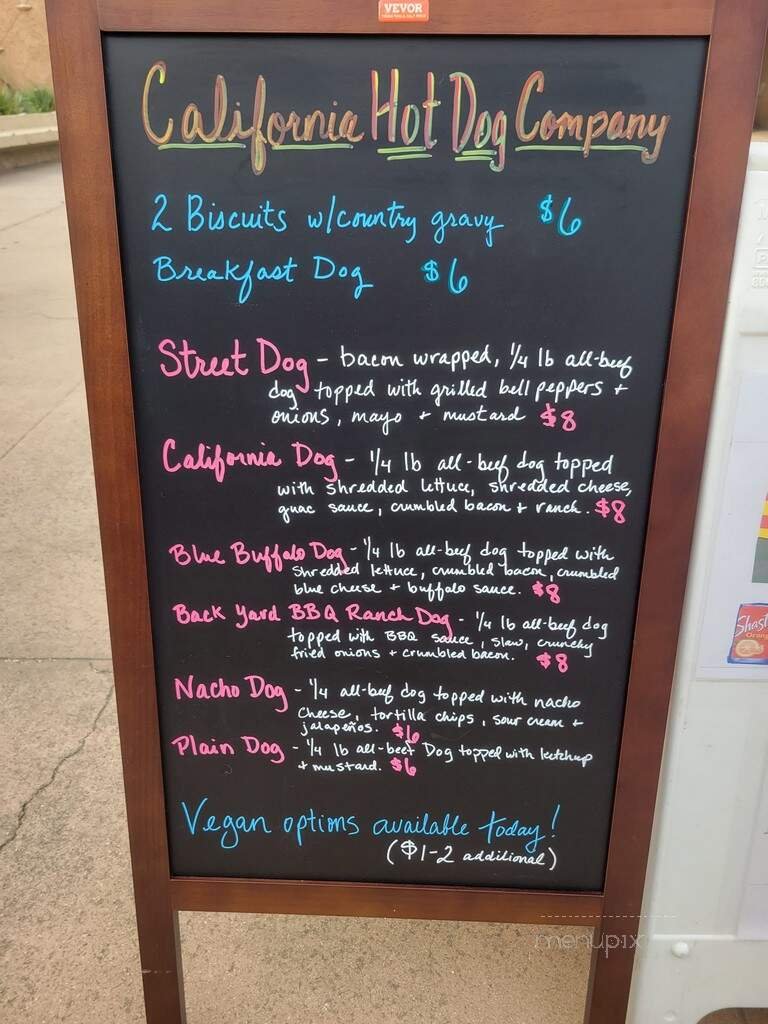 VEVOR
California Hot Dog Company
2 Biscuits w/country gravy $6
Breakfast Dog $6
Street Dog - bacon wrapped, 1/4 lb all-beef
dog topped with grilled bell peppers +
onions, mayo + mustard $8
California Dog - 1/4 lb all-beef dog topped
with shredded lettuce, shredded cheese,
guac sauce, crumbled bacon + ranch. $8
Blue Buffalo Dog - 1/4 lb all-beef dog topped with
shredded lettuce, crumbled bacon, crumbled
blue cheese + buffalo sauce. $8
Back Yard BBQ Ranch Dog - 1/4 lb all-beef dog
topped with BBQ sauce, slaw, crunchy
fried onions + crumbled bacon. $8
Nacho Dog - 1/4 all-beef dog topped with nacho
cheese, tortilla chips, sour cream +
jalapeños. $6
Plain Dog - 1/4 lb all-beef Dog topped with ketchup
+ mustard. $6
Vegan options available today!
($1-2 additional)
Shasta
Orang
menupix